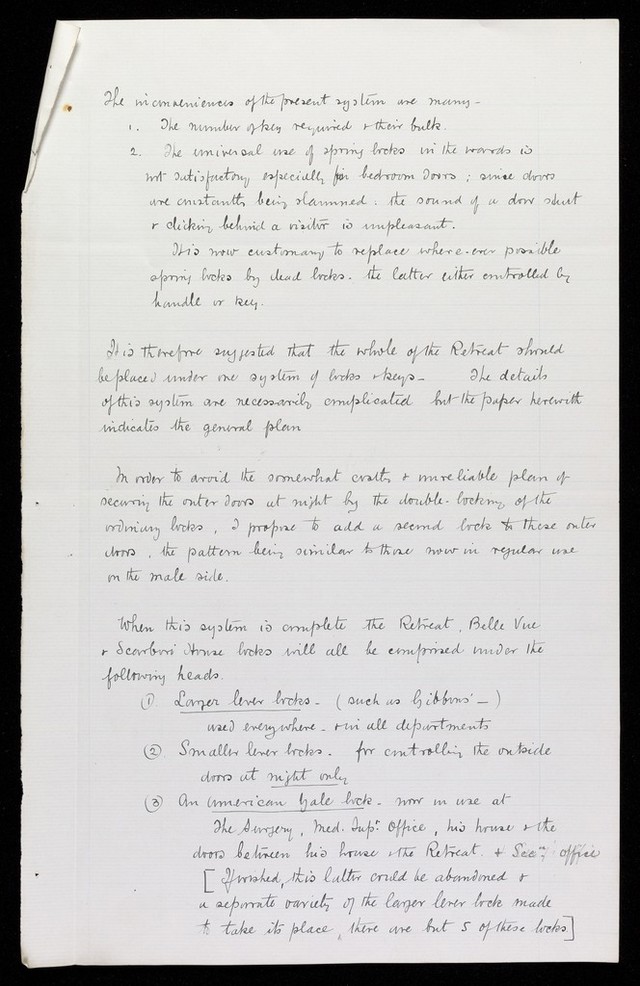 The inconveniences of the present system are many -
1. The number of keys required & their bulk.
2. The universal use of spring locks in the wards is
not satisfactory especially for bedroom doors ; since doors
are constantly being slammed : the sound of a door shut
& clicking behind a visitor is unpleasant.
It is now customary to replace where-ever possible
spring locks by dead locks. the latter either controlled by
handle or key.
It is therefore suggested that the whole of the Retreat should
be placed under one system of locks & keys - The details
of this system are necessarily complicated but the paper herewith
indicates the general plan
In order to avoid the somewhat costly & unreliable plan of
securing the outer doors at night by the double-locking of the
ordinary locks, I propose to add a second lock to these outer
doors, the pattern being similar to those now in regular use
on the male side.
When this system is complete the Retreat, Belle Vue
& Scarbro' House locks will all be comprised under the
following heads.
① Larger lever locks - (such as Gibbons' - )
used everywhere - & in all departments
② Smaller lever locks - for controlling the outside
doors at night only
③ An American Yale lock - now in use at
The Surgery, Med. Supt. Office, his house & the
doors between his house & the Retreat. & Secy's office
[If wished, this latter could be abandoned &
a separate variety of the larger lever lock made
to take its place, there are but 5 of these locks]